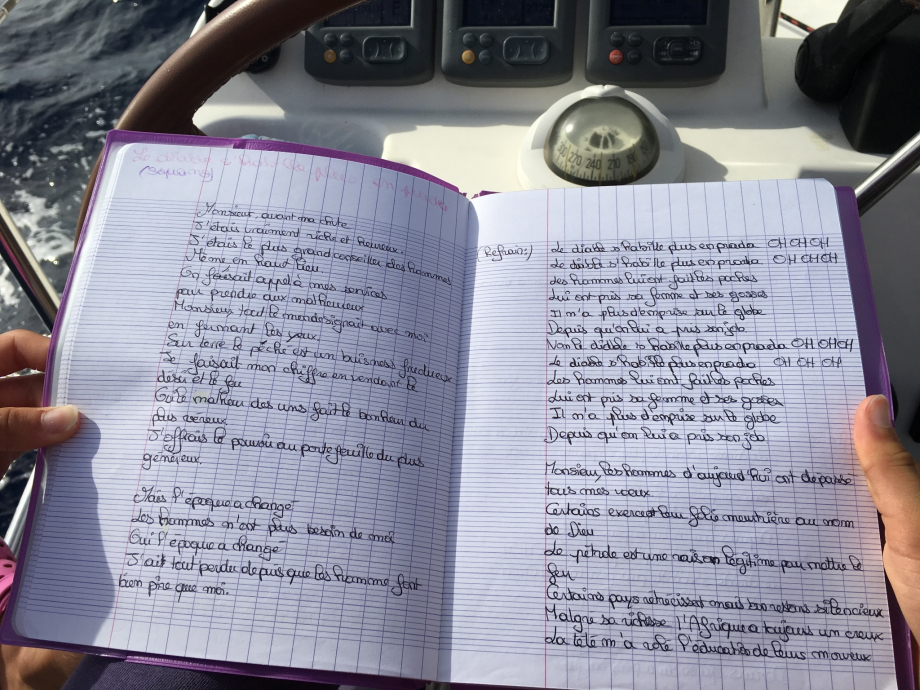 Le diable ne s'habille plus en prada
(Soprano)
Monsieur, avant ma chute
J'étais vraiment riche et heureux.
J'étais le plus grand conseiller des hommes
Même en haut lieu
On faisait appel à mes services
pour prendre aux malheureux
Monsieur tout le monde signait avec moi
en fermant les yeux.
Sur terre le pêché est un buisness fructueux
Je faisait mon chiffre en vendant le
désir et le feu
Car le malheur des uns fait le bonheur du
plus véreux
J'offrais le pouvoir au portefeuille du plus
généreux.
Mais l'époque a changé
Les hommes n'ont plus besoin de moi
Oui l'époque a changé
J'ait tout perdu depuis que les homme font
bien pire que moi.
(Refrain:)
Le diable s'habille plus en prada OH OH OH
Le diable s'habille plus en prada OH OH OH
Les hommes lui ont fait les poches
Lui ont pris sa femme et ses gosses
Il m'a plus d'emprise sur le globe
Depuis qu'on lui a pris son job
Non le diable s'habille plus en prada OH OH OH
Le diable s'habille plus en prada OH OH OH
Les hommes lui ont fait les poches
Lui ont pris sa femme et ses gosses
Il m'a plus d'emprise sur le globe
Depuis qu'on lui a pris son job
Monsieur, les hommes d'aujourd'hui ont dépassé
tous mes voeux
Certains exercent leur folie meurtrière au nom
de Dieu
Le pétrole est une raison légitime pour mettre le
feu
Certains pays rétrécissent mais on restent silencieux
Malgré sa richesse l'Afrique a toujours un creux
La télé m'a volé l'éducation de leurs morveux
270 240 210